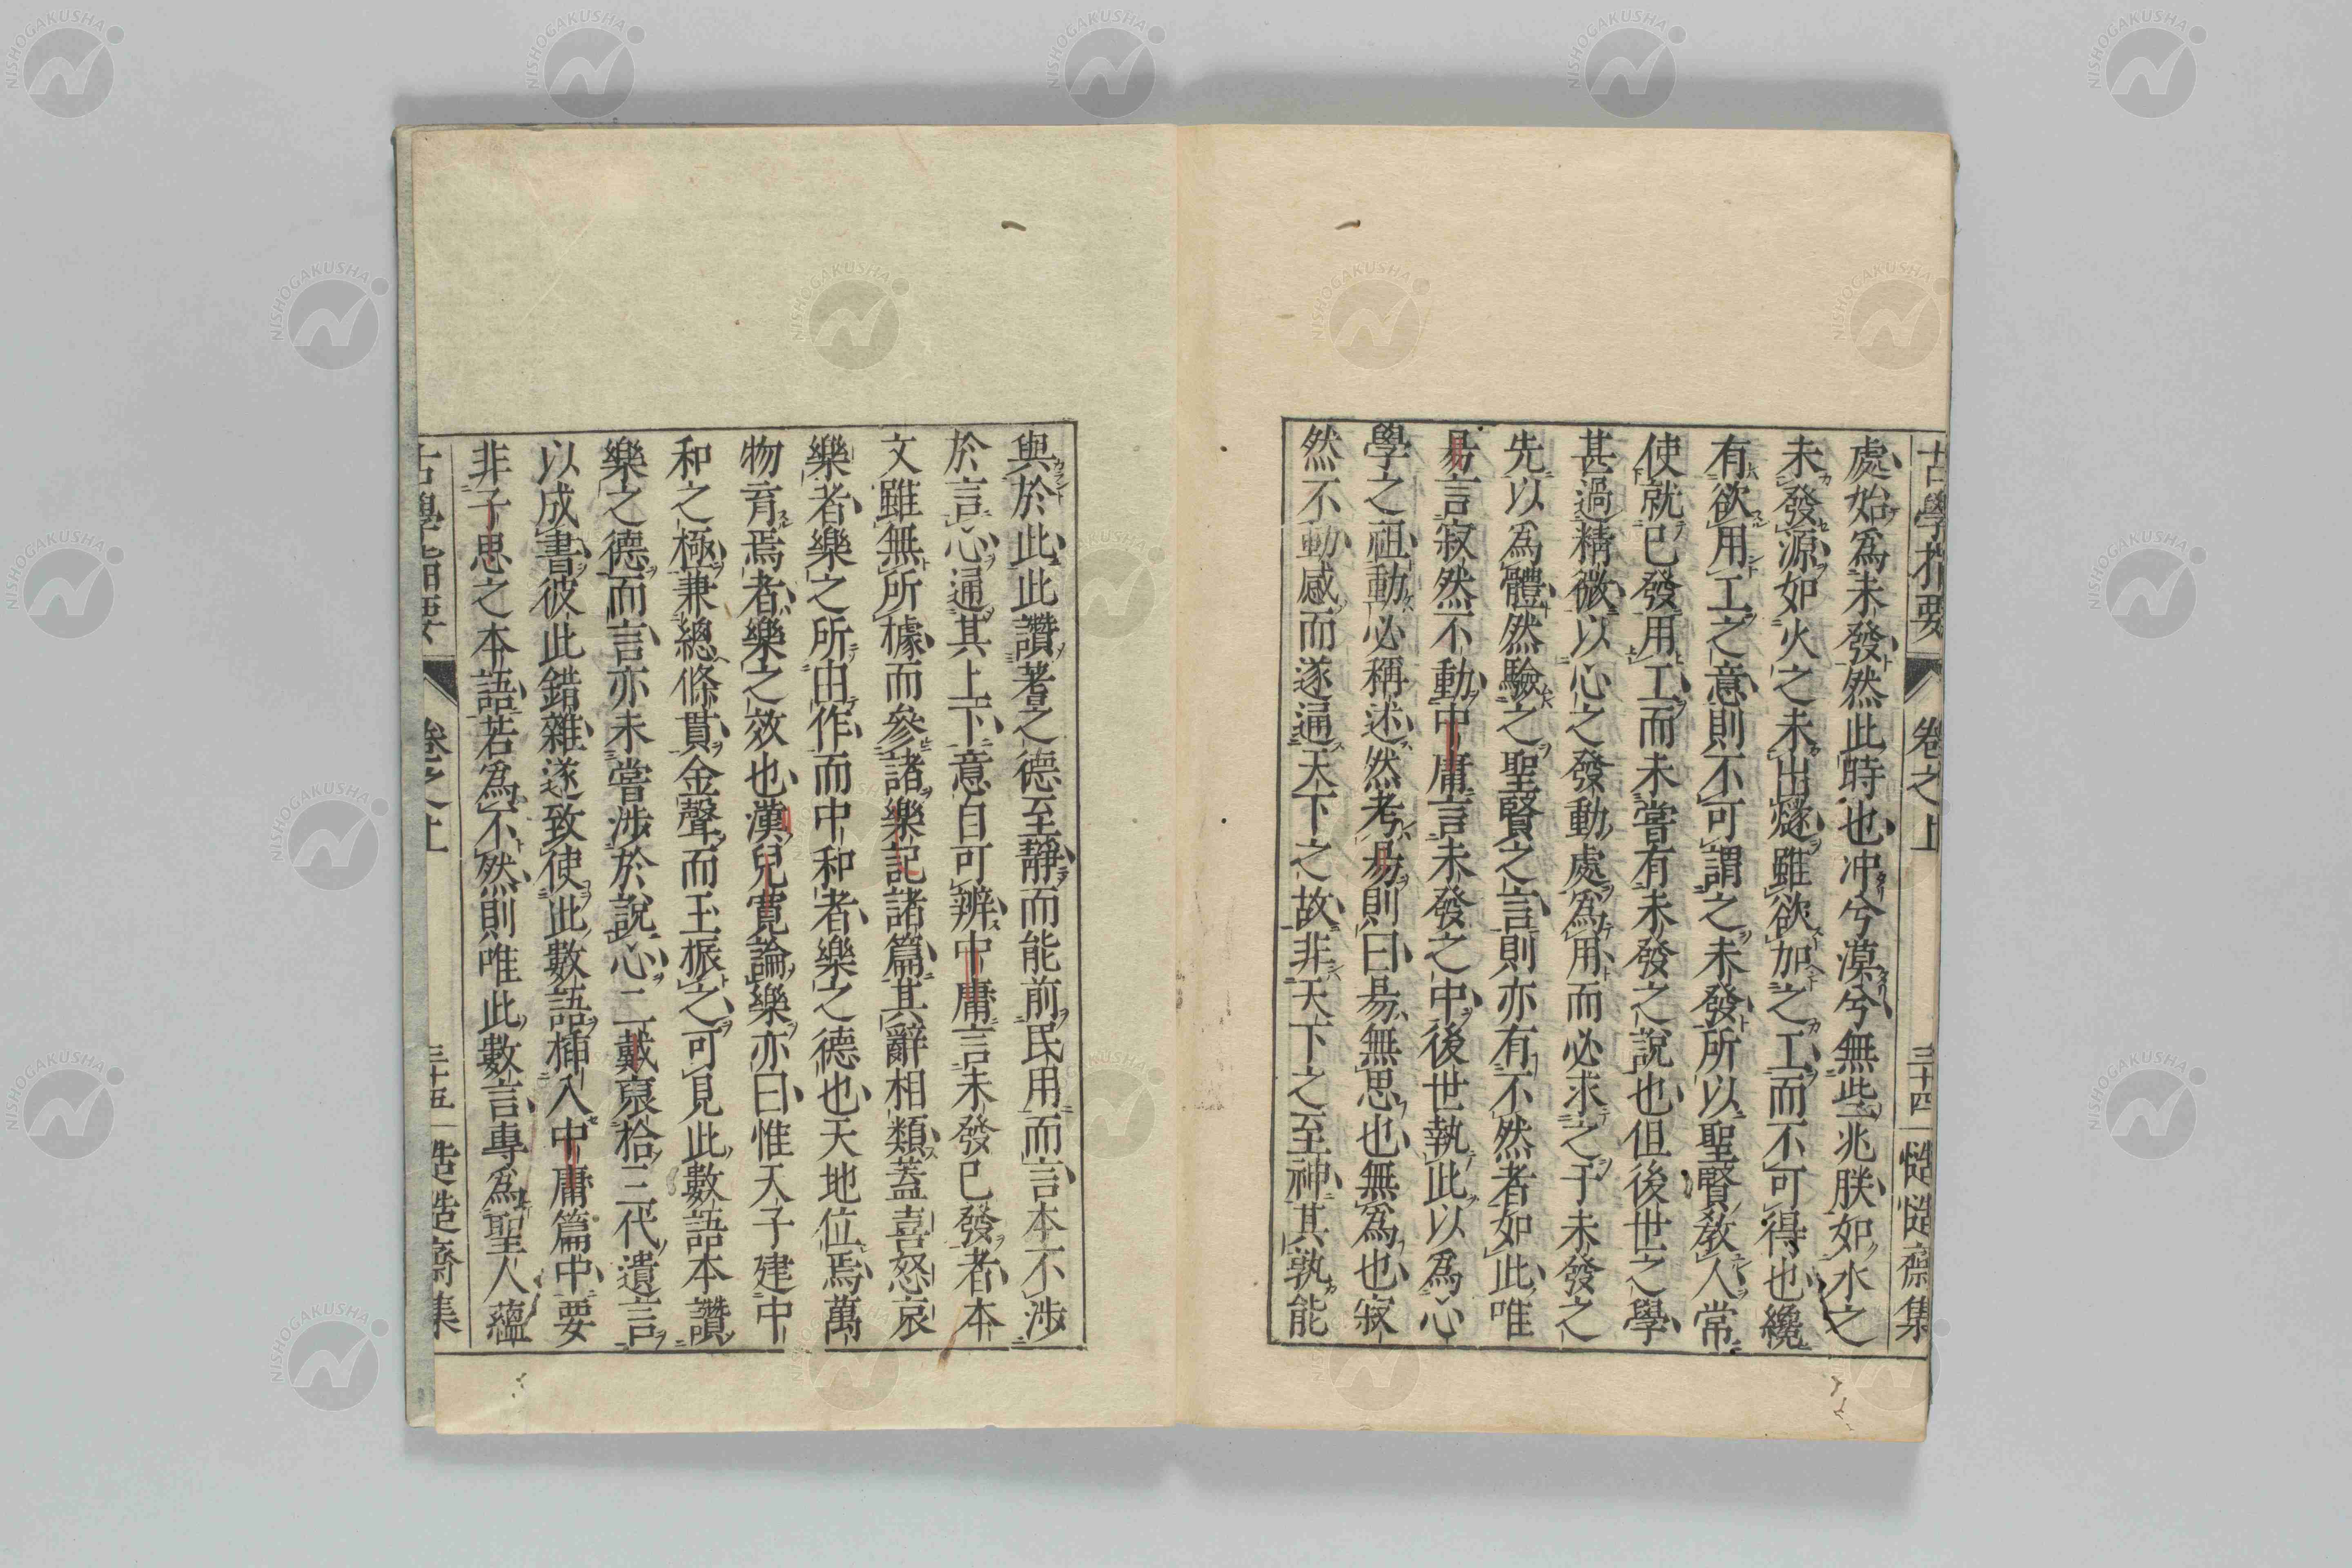 古學指要 卷之上 三十四 慥慥齋集
處始爲未發然此時也冲兮漠兮無些兆朕如水之
未發源如火之未出燧雖欲加之工而不可得也纔
有欲用工之意則不可謂之未發所以聖賢教人常
使就已發用工而未嘗有未發之說也但後世之學
甚過精微以心之發動處爲用而必求之于未發之
先以爲體然驗之聖賢之言則亦有不然者如此唯
易言寂然不動中庸言未發之中後世執此以爲心
學之祖動必稱述然考易則曰易無思也無爲也寂
然不動感而遂通天下之故非天下之至神其孰能
與於此此讚蓍之德至靜而能前民用而言本不涉
於言心通其上下意自可辨中庸言未發已發者本
文雖無所據而參諸樂記諸篇其辭相類蓋喜怒哀
樂者樂之所由作而中和者樂之德也天地位焉萬
物育焉者樂之效也漢兒寬論樂亦曰惟天子建中
和之極兼總條貫金聲而玉振之可見此數語本讚
樂之德而言亦未嘗涉於說心二戴裒拾三代遺言
以成書彼此錯雜遂致使此數語插入中庸篇中要
非子思之本語若爲不然則唯此數言專爲聖人蘊
古學指要 卷之上 三十五 慥慥齋集
NISHOGAKUSHA